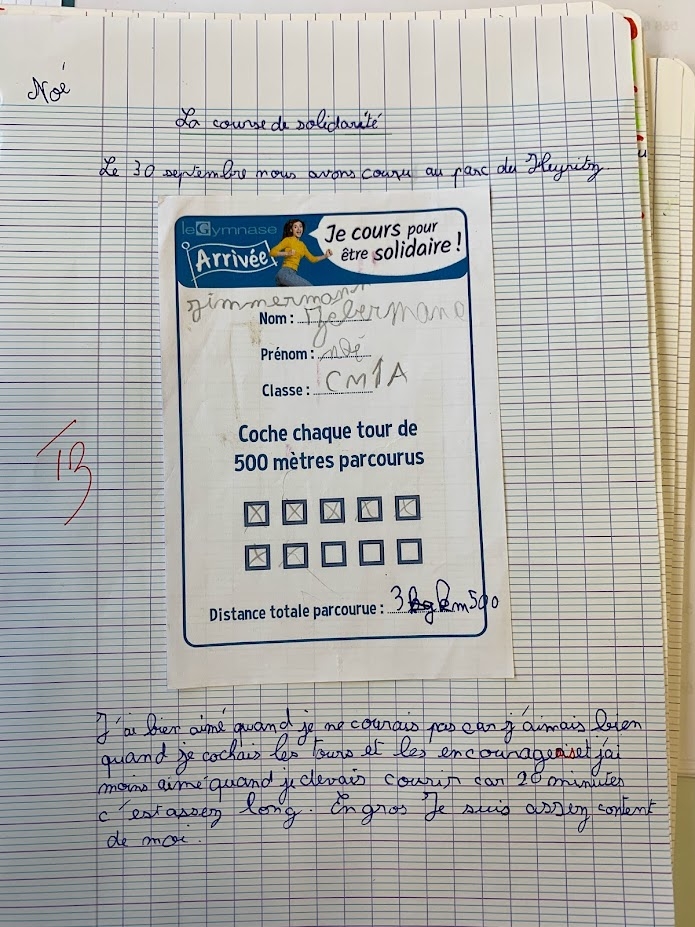 Noé
La course de solidarité
Le 30 septembre nous avons couru au parc du Heyritz
leGymnase
Arrivée
Je cours pour
être solidaire !
zimmermann
Nom : Zebermano
Prénom : Noé
Classe : CM1A
Coche chaque tour de
500 mètres parcourus
Distance totale parcourue : 3 km 500
TB
J'ai bien aimé quand je ne courais pas car j'aimais bien
quand je cochais les tours et les encourageaiset j'ai
moins aimé quand je devais courir car 20 minutes
c'est assez long. En gros Je suis assez content
de moi.